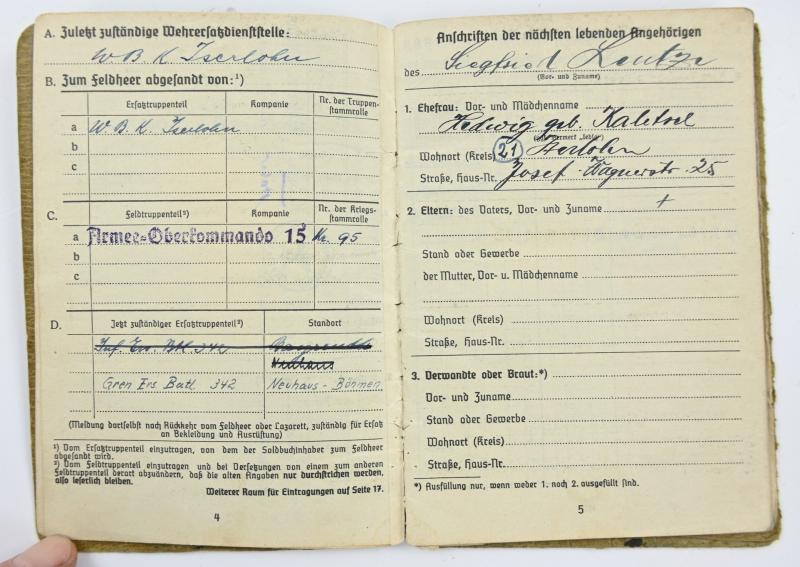 A. Zuletzt zuständige Wehrersatzdienststelle:
W B K Iserlohn
B. Zum Feldheer abgesandt von:¹)
Ersatztruppenteil Kompanie Nr. der Truppen-
stammrolle
a W. B. K. Iserlohn
b
c
C. Feldtruppenteil²) Kompanie Nr. der Kriegs-
stammrolle
a Armee-Oberkommando 15 No. 95
b
c
D. Jetzt zuständiger Ersatztruppenteil²) Standort
Inf. Ers. Btl 342
Neuhaus
Gren Ers Batl 342 Neuhaus - Böhmen
(Meldung dortselbst nach Rückkehr vom Feldheer oder Lazarett, zuständig für Ersatz
an Bekleidung und Ausrüstung)
¹) Vom Ersatztruppenteil einzutragen, von dem der Soldbuchinhaber zum Feldheer
abgesandt wird.
²) Vom Feldtruppenteil einzutragen und bei Versetzungen von einem zum anderen
Feldtruppenteil derart abzuändern, daß die alten Angaben nur durchstrichen werden,
also leserlich bleiben.
Weiterer Raum für Eintragungen auf Seite 17.
4
Anschriften der nächsten lebenden Angehörigen
des Siegfried
(Vor- und Zuname)
1. Ehefrau: Vor- und Mädchenname
Hedwig geb.
Wohnort (Kreis) 21 Iserlohn
Straße, Haus-Nr. Josef-Wagnerstr. 25
2. Eltern: des Vaters, Vor- und Zuname +
Stand oder Gewerbe
der Mutter, Vor- u. Mädchenname
Wohnort (Kreis)
Straße, Haus-Nr.
3. Verwandte oder Braut:*)
Vor- und Zuname
Stand oder Gewerbe
Wohnort (Kreis)
Straße, Haus-Nr.
*) Ausfüllung nur, wenn weder 1. noch 2. ausgefüllt sind.
5